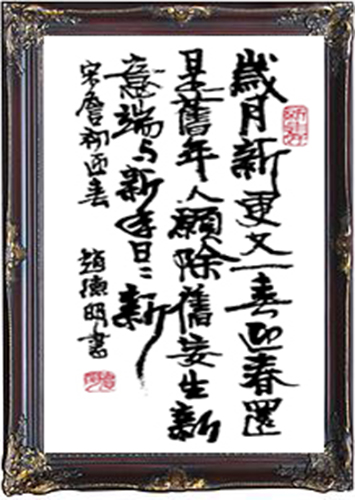 歲月新更又一春迎春還
是舊年人願除舊妄生新
意端与新年日〻新
宋詹初迎春 趙德明書